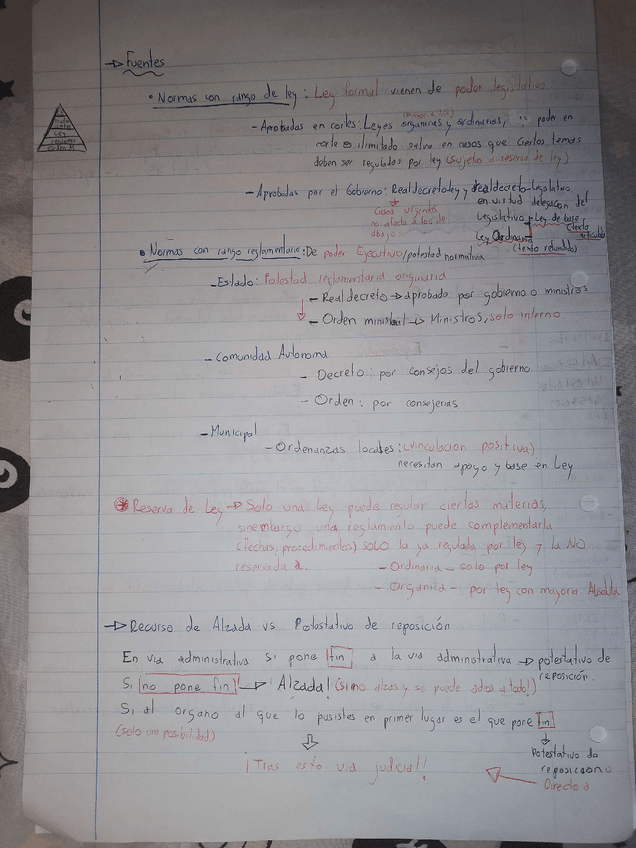 → Fuentes
• Normas con rango de ley: Ley formal vienen de poder legislativo
- Aprobadas en cortes: Leyes organicas y ordinarias, poder en
norte es ilimitado salva en casos que ciertos temas
deben ser regulados por ley (sujeto a reserva de ley)
- Aprobadas por el Gobierno: Real decreto ley y real decreto-Legislativo,
en virtud delegacion del
Casos urgentes
no afecta a los de
abajo
Legislativo → Ley de base
(texto articulado)
Ley Ordinaria
(texto refundido)
• Normas con rango reglamentario: De poder Ejecutivo/potestad normativa
- Estado: Potestad reglamentaria originaria
- Real decreto → aprobado por gobierno o ministros
- Orden ministerial → Ministros, solo interno
- Comunidad Autonoma
- Decreto: por consejos del gobierno
- Orden: por consejerias
- Municipal
- Ordenanzas locales: (vinculacion positiva)
necesitan apoyo y base en Ley
Reserva de Ley → Solo una Ley puede regular ciertas materias,
sinembargo una reglamento puede complementarla
(fechas, procedimientos) SOLO la ya regulada por ley y la NO
reservada a.
- Ordinaria - solo por ley
- Organica - por ley con mayora Absoluta
→ Recurso de Alzada vs Potostativo de reposición
En via administrativa si pone fin a la via administrativa → potestativo de
reposición.
Si no pone fin → Alzada! (si no dicas y se puede adios a todo!)
Si al organo al que lo pusistes en primer lugar es el que pone fin
(solo una posibilidad)
Potestativo de
reposicion o
Directo a
¡Tras esto via judicial!